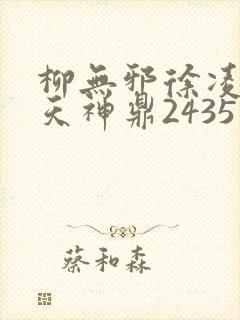 柳無邪徐凌
天神鼎2435
蔡和森